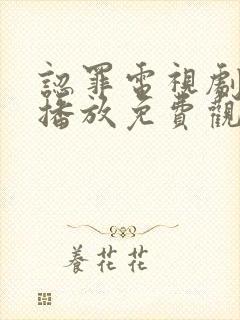 認罪電視劇
播放免費觀
養花花